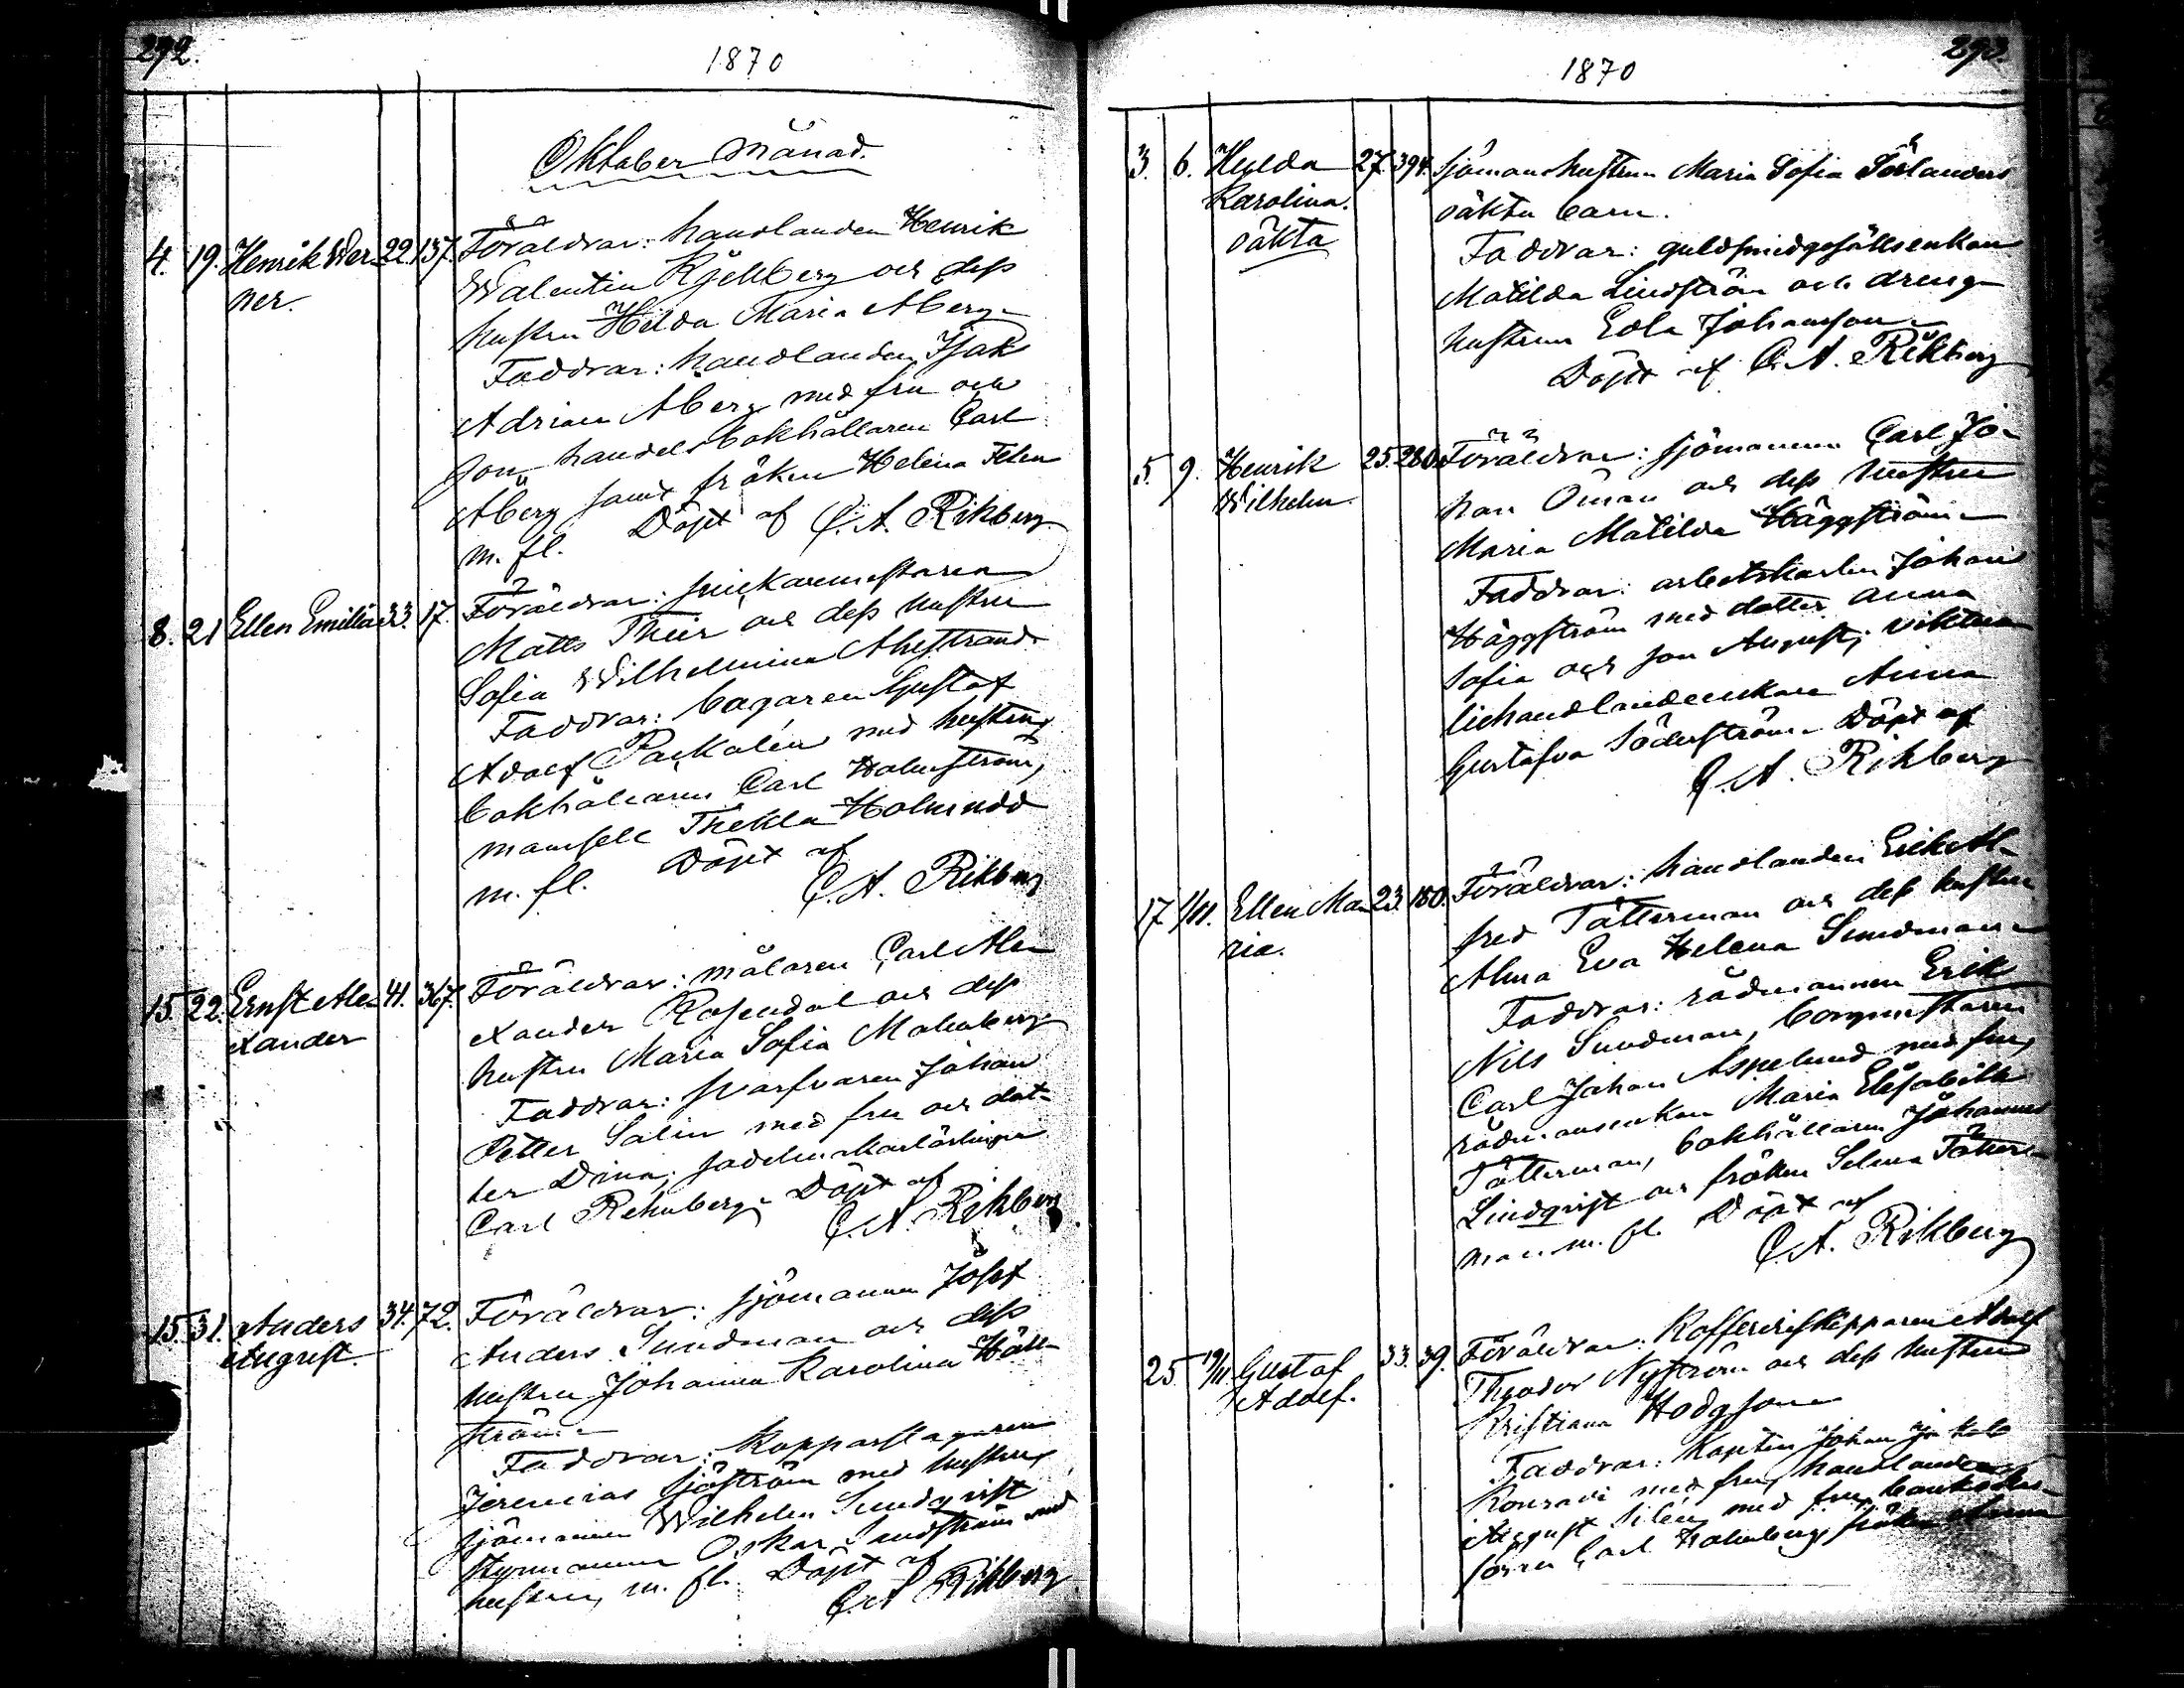 292.
1870
Oktober Månad.
4. 19. Henrik Wer- 22. 137. Föräldrar: handlanden Henrik
ner. Walentin Kjellberg och dess
hustru Hilda Maria Åberg.
Faddrar: handlanden Isak
Adrian Åberg med fru och
son handelsbokhållaren Carl
Åberg samt fröken Helena
m. fl. Döpt af C. A. Rikberg
8. 21 Ellen Emilia 33. 17. Föräldrar: snickaremästaren
Matts Thür och dess hustru
Sofia Wilhelmina Ahlstrand
Faddrar: bagaren Gustaf
Adolf Packalén med hustru,
bokhållaren Carl Holmström,
mamsell Thekla Holmudd
m. fl. Döpt af
C. A. Rikberg
15. 22. Ernst Ale- 41. 367. Föräldrar: målaren Carl Ale-
xander xander Rosendal och dess
hustru Maria Sofia Malmberg
Faddrar: svarfvaren Johan
Petter Salin med fru och dot-
ter Dina, sadelmakarlärlingen
Carl Rehnberg. Döpt af
C. A. Rikberg
15. 31. Anders 34. 72. Föräldrar: sjömannen Josef
August. Anders Sundman och dess
hustru Johanna Karolina Häll-
ström
Faddrar: kopparslagaren
Jeremias Sjöström med hustru,
sjömannen Wilhelm Sundqvist
styrmannen Oskar Sandström med
hustru, m. fl. Döpt af
C. A. Rikberg
293.
1870
3. 6. Hulda 27. 394. Sjömanshustrun Maria Sofia Sörlanders
Karolina. oäkta barn.
oäkta Faddrar: guldsmedgesällsenkan
Matilda Lindström och dreng-
hustrun Edla Johansson
Döpt af C. A. Rikberg
5. 9. Henrik 25. 280. Föräldrar: sjömannen Carl Jo-
Wilhelm. han Öman och dess hustru
Maria Matilda Häggström
Faddrar: arbetskarlen Johan
Häggström med dotter Anna
Sofia och son August, viktua-
liehandlandeenkan Anna
Gustafva Söderström. Döpt af
C. A. Rikberg
17 1/11. Ellen Ma- 23. 180. Föräldrar: handlanden Erik Al-
ria. fred Tötterman och dess hustru
Alma Eva Helena Sundman
Faddrar: rådmannen Erik
Nils Sundman, borgmästaren
Carl Johan Aspelund med fru,
rådmansenkan Maria Elisabeth
Tötterman, bokhållaren Johannes
Lindqvist och fröken Selma Tötter-
man m. fl. Döpt af
C. A. Rikberg
25 19/11 Gustaf 33. 39. Föräldrar: Kofferdiskepparen Adolf
Adolf. Theodor Nyström och dess hustru
Kristiana Hodgson
Faddrar: Kapten Johan Jakob
Konradi med fru, handlanden
August Silén med fru,
Carl Holmberg, fröken Anna